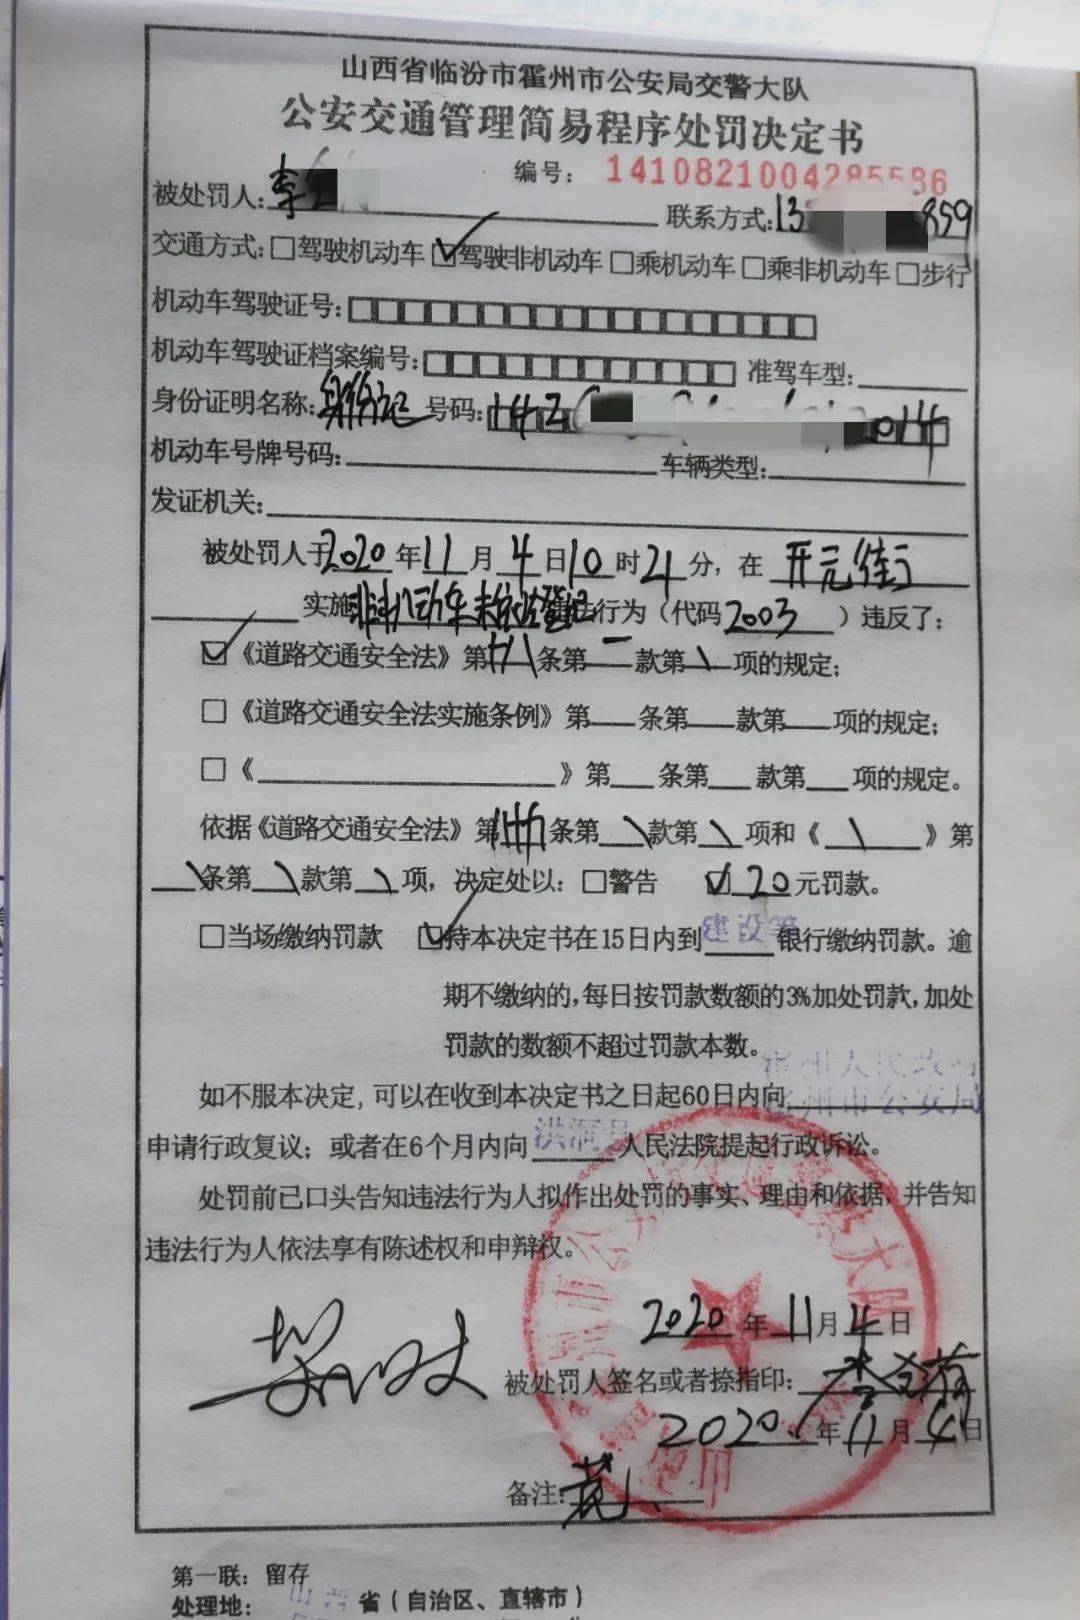 山西省临汾市霍州市公安局交警大队
公安交通管理简易程序处罚决定书
编号： 1410821004285586
被处罚人：李 联系方式：13 859
交通方式：□驾驶机动车 ☑驾驶非机动车 □乘机动车 □乘非机动车 □步行
机动车驾驶证号：
机动车驾驶证档案编号： 准驾车型：
身份证明名称：身份证 号码：142 2014
机动车号牌号码： 车辆类型：
发证机关：
被处罚人于2020年11月4日10时21分，在 开元街
实施非机动车未依法登记违法行为（代码2003）违反了：
☑《道路交通安全法》第十八条第一款第\项的规定；
□《道路交通安全法实施条例》第 条第 款第 项的规定；
□《 》第 条第 款第 项的规定。
依据《道路交通安全法》第 条第\款第\项和《 \ 》第
\条第\款第\项，决定处以：□警告 ☑20元罚款。
□当场缴纳罚款 ☑持本决定书在15日内到建设等银行缴纳罚款。逾
期不缴纳的，每日按罚款数额的3%加处罚款，加处
罚款的数额不超过罚款本数。
霍州人民政府
如不服本决定，可以在收到本决定书之日起60日内向霍州市公安局
申请行政复议；或者在6个月内向洪洞县人民法院提起行政诉讼。
处罚前已口头告知违法行为人拟作出处罚的事实、理由和依据，并告知
违法行为人依法享有陈述权和申辩权。
2020年11月4日
被处罚人签名或者捺指印：
2020年11月4日
备注：
第一联：留存
处理地：山西省（自治区、直辖市）